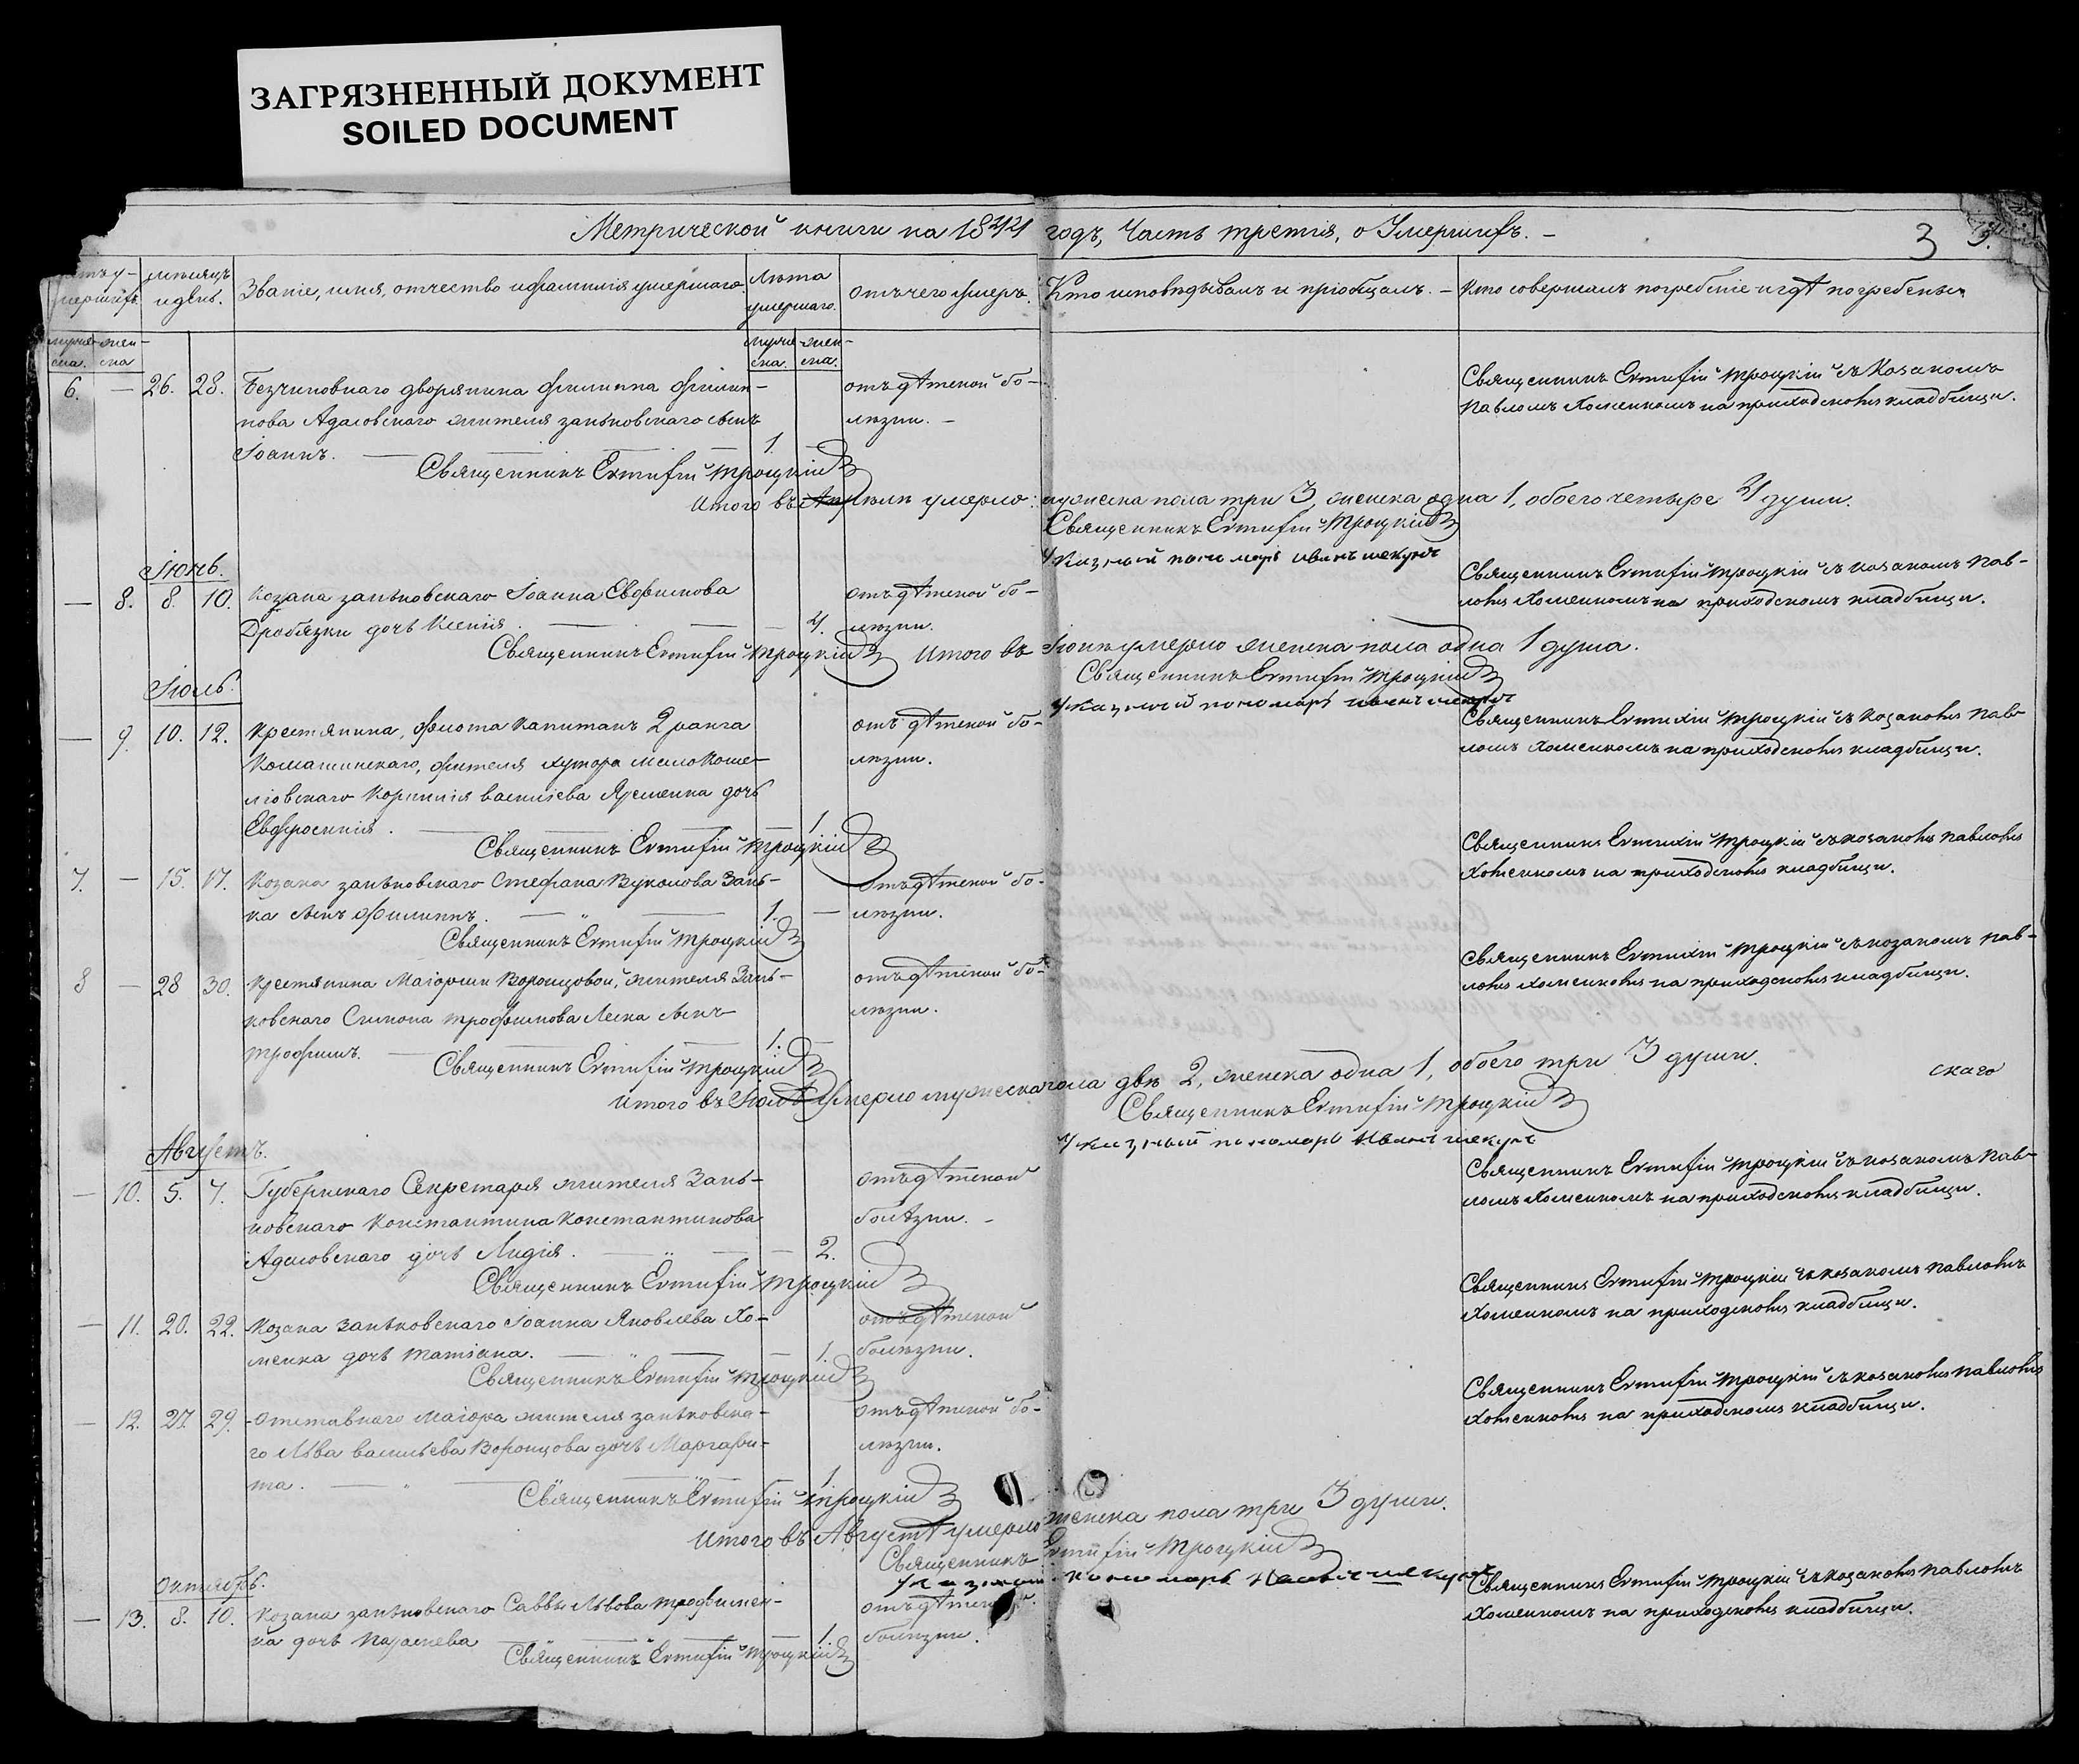 ЗАГРЯЗНЕННЫЙ ДОКУМЕНТ
SOILED DOCUMENT
Метрической книги на 1844 годъ, Часть третія, о Умершихъ. –
3
умершихъ
мѣсяцъ и день.
Званіе, имя, отчество и фамилія умершаго.
Лѣта умершаго.
отъ чего умеръ.
Кто исповѣдывалъ и пріобщалъ. –
Кто совершалъ погребеніе и гдѣ погребены.
мужеска.
женска
мужеска.
женска.
6. — 26. 28. Безчиновнаго дворянина Филиппа Филип–
нова Адасовскаго жителя заньковскаго сынъ
Іоаннъ. — 1.
отъ дѣтской бо–
лѣзни. –
Священникъ Евтифій Троцкій съ Козакомъ
Павломъ Хоменкомъ на приходскомъ кладбищи.
Священникъ Евтифій Троцкій
Итого въ Апрѣлѣ умерло: мужеска пола три 3, женска одна 1, обоего четыре 4 души.
Священникъ Евтифій Троцкій
Указный пономарь Иванъ
Іюнь.
— 8. 8. 10. Козака заньковскаго Іоанна Евфимова
Дробязки дочь Ксенія. — 4.
отъ дѣтской бо–
лѣзни.
Священникъ Евтифій Троцкій съ козакомъ Пав–
ломъ Хоменкомъ на приходскомъ кладбищи.
Священникъ Евтифій Троцкій
Итого въ Іюнѣ умерло женска пола одна 1 душа.
Священникъ Евтифій Троцкій
Указный пономарь Иванъ
Іюль.
— 9. 10. 12. Крестянина, флота Капитанъ 2 ранга
жителя хутора
Корнилія Василіева Яременка дочь
Евфросинія. — 1.
отъ дѣтской бо–
лѣзни.
Священникъ Евтихій Троцкій съ Козакомъ Пав–
ломъ Хоменкомъ на приходскомъ кладбищи.
Священникъ Евтифій Троцкій
7. — 15. 17. Козака заньковскаго Стефана Вуколова Занъ–
ка сынъ Филиппъ. — 1. —
отъ дѣтской бо–
лѣзни.
Священникъ Евтихій Троцкій съ козакомъ Павломъ
Хоменкомъ на приходскомъ кладбищи.
Священникъ Евтифій Троцкій
8 — 28 30. Крестянина Маіорши Воронцовой, жителя Зань–
ковскаго Симона Трофимова Леска сынъ
Трофимъ. — 1. —
отъ дѣтской бо–
лѣзни.
Священникъ Евтихій Троцкій съ козакомъ Пав–
ломъ Хоменкомъ на приходскомъ кладбищи.
Священникъ Евтифій Троцкій
Итого въ Іюлѣ умерло мужеска пола двѣ 2, женска одна 1, обоего три 3 души.
скаго
Священникъ Евтифій Троцкій
Указный пономарь Иванъ
Августъ.
— 10. 5. 7. Губернскаго Секретаря жителя Зань–
ковскаго Константина Константинова
Адасовскаго дочь Лидія. — 2.
отъ дѣтской
болѣзни. –
Священникъ Евтифій Троцкій съ козакомъ Пав–
ломъ Хоменкомъ на приходскомъ кладбищи.
Священникъ Евтифій Троцкій
— 11. 20. 22. Козака Заньковскаго Іоанна Яковлева Хо–
менка дочь Татіана. — 1.
отъ дѣтской
болѣзни.
Священникъ Евтифій Троцкій съ козакомъ Павломъ
Хоменкомъ на приходскомъ кладбищи.
Священникъ Евтифій Троцкій
— 12. 27. 29. Отставнаго Маіора жителя заньковска–
го Льва Васильева Воронцова дочь Маргари–
та. — 1.
отъ дѣтской бо–
лѣзни.
Священникъ Евтифій Троцкій съ козакомъ Павломъ
Хоменкомъ на приходскомъ кладбищи.
Священникъ Евтифій Троцкій
Итого въ Августѣ умерло женска пола три 3 души.
Священникъ Евтифій Троцкій
Указный пономарь Иванъ
Октябрь.
— 13. 8. 10. Козака заньковскаго Саввы Львова Трофимен–
ка дочь Параскева — 1.
отъ дѣтской
болѣзни.
Священникъ Евтифій Троцкій съ козакомъ Павломъ
Хоменкомъ на приходскомъ кладбищи.
Священникъ Евтифій Троцкій